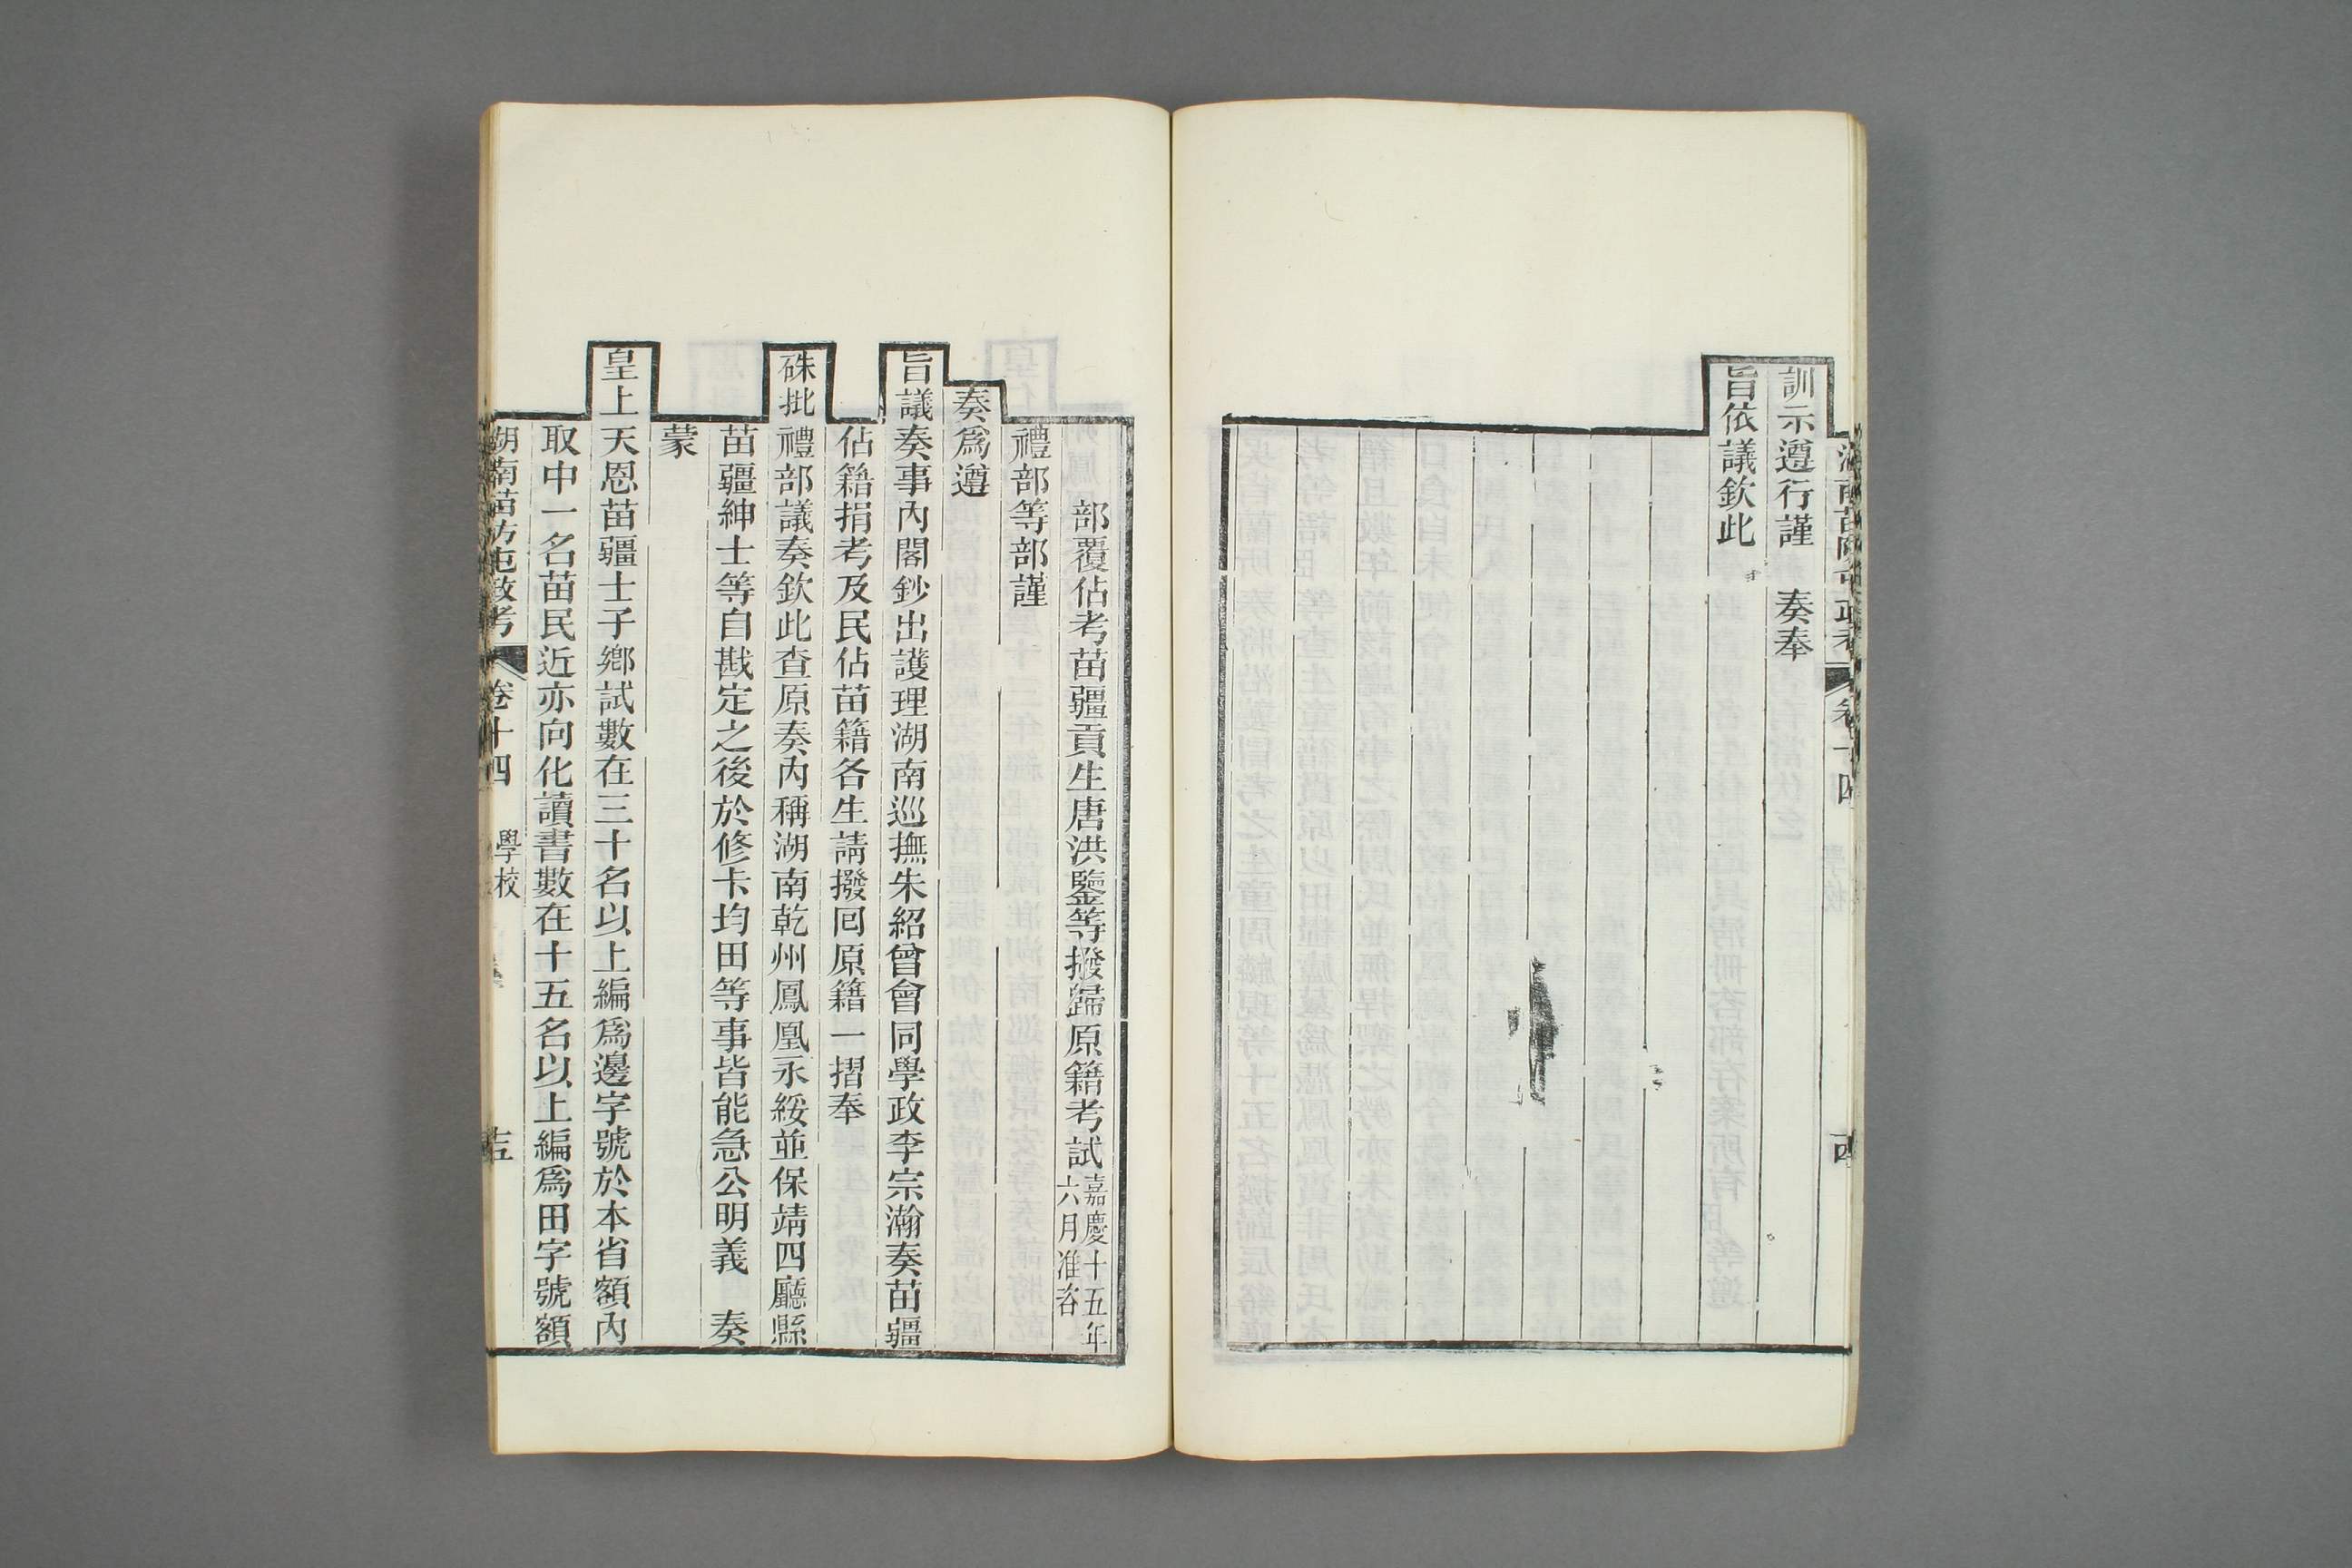 湖南苗防屯政考 卷十四 學校 四
訓示遵行謹 奏奉
旨依議欽此
部覆佔考苗疆貢生唐洪鑒等撥歸原籍考試嘉慶十五年
六月准咨
禮部等部謹
奏爲遵
旨議奏事內閣鈔出護理湖南巡撫朱紹曾會同學政李宗瀚奏苗疆
佔籍捐考及民佔苗籍各生請撥囘原籍一摺奉
硃批禮部議奏欽此查原奏內稱湖南乾州鳳凰永綏並保靖四廳縣
苗疆紳士等自戡定之後於修卡均田等事皆能急公明義 奏
蒙
皇上天恩苗疆士子鄉試數在三十名以上編爲邊字號於本省額內
取中一名苗民近亦向化讀書數在十五名以上編爲田字號額
湖南苗防屯政考 卷十四 學校 十五